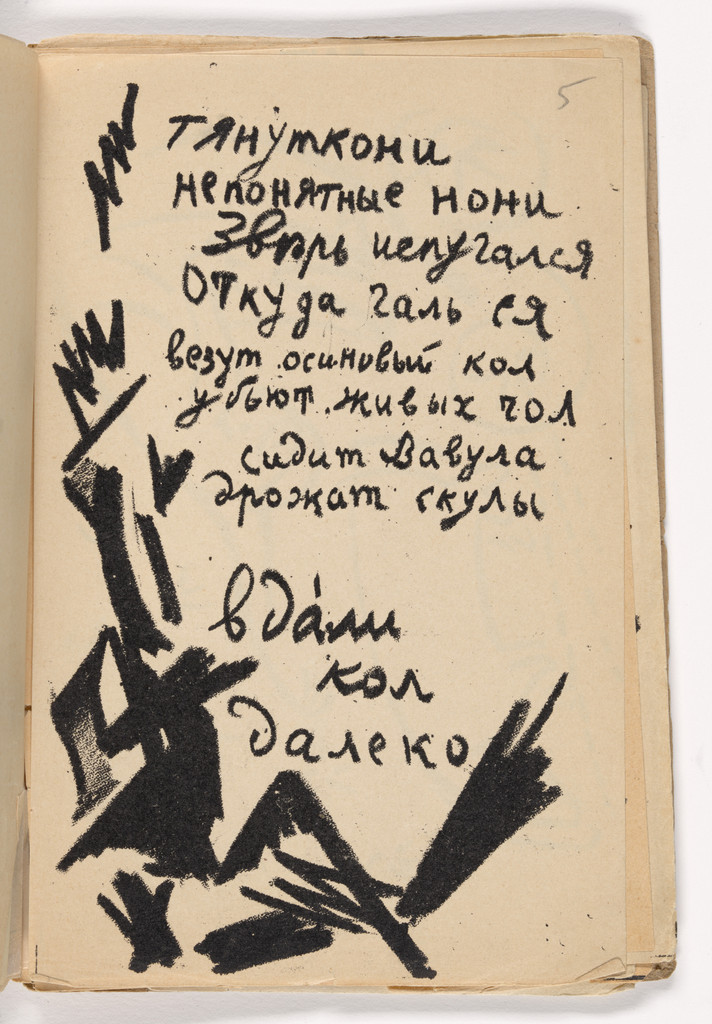 5
тянуткони
непонятные нони
Зверь испугался
Откуда галь ся
везут осиновый кол
убьют живых чол
сидит Вавула
дрожат скулы
вда́ли
кол
далеко